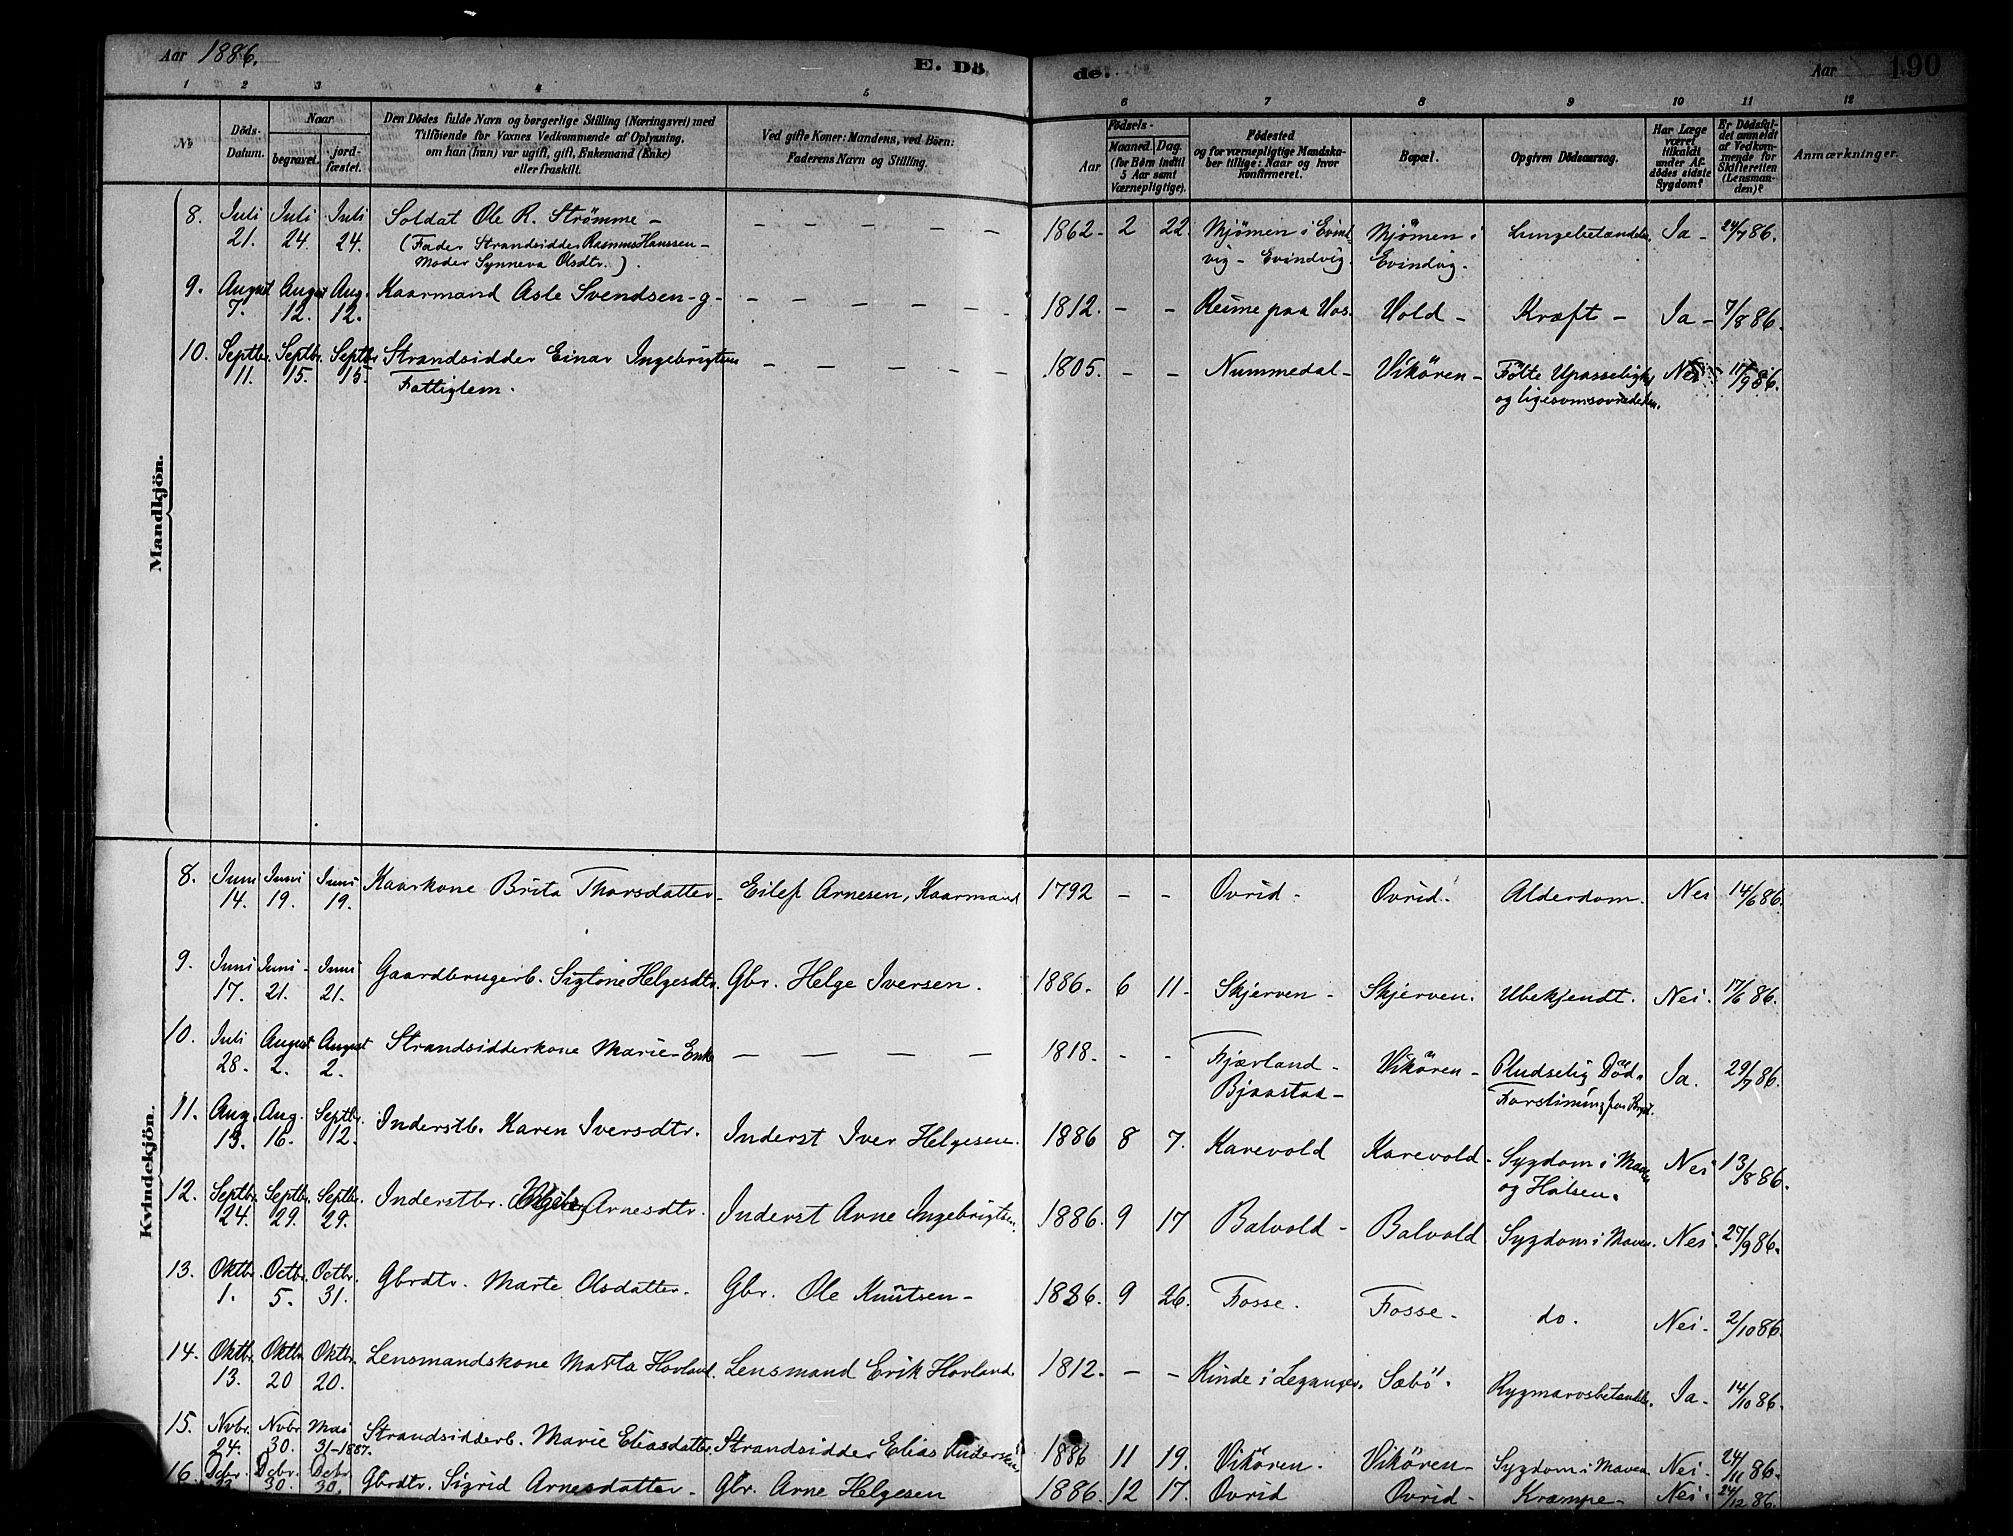 Aar 1886. E. Dö de. Aar 190
1 2 3 4 5 6 7 8 9 10 11 12
No Döds-Datum. Naar begravet. jordfæstet. Den Dödes fulde Navn og borgerlige Stilling (Næringsvei) med Tilföiende for Voxnes Vedkommende af Oplysning, om han (hun) var ugift, gift, Enkemand (Enke) eller fraskilt. Ved gifte Koner: Mandens, ved Börn: Faderens Navn og Stilling. Födsels- Aar Maaned. Dag. (for Börn indtil 5 Aar samt Værnepligtige). Födested og for værnepligtige Mandskaber tillige: Naar og hvor konfirmeret. Bopæl. Opgiven Dödsaarsag. Har Læge været tilkaldt under Afdödes sidste Sygdom? Er Dödsfaldet anmeldt af Vedkommende for Skifteretten (Lensmanden)? Anmærkninger.
Mandkjön.
8. Juli 21. Juli 24. Juli 24. Soldat Ole R. Strömme - (Fader Strandsidder Rasmus Hanssen - Moder Synneva Olsdtr.). - - - - - 1862. 2 22. Mjömen i Evindvig - Evindvig. Mjömen i Evindvig. Lungebetændelse Ja - 24/7 86.
9. August 7. August 12. Aug. 12. Kaarmand Asle Svendsen - g - - - - - - 1812. - - Reime paa Vos. Vold - Kræft - Ja - 7/8 86.
10. Septbr. 11. Septbr. 15. Septbr. 15. Strandsidder Einar Ingebrigtsen Fattiglem. - - - - - 1805. - - Nummedal - Vikören - Fölte Upasselighed og ligesom Nei 11/9 86.
Kvindekjön.
8. Juni 14. Juni 19. Juni 19. Kaarkone Brita Thorsdatter - Eilef Arnesen, Kaarmand 1792 - - Ovrid - Ovrid. Alderdom. Nei 14/6 86.
9. Juni 17. Juni 21. Juni 21. Gaardbrugerb. Sigtone Helgesdtr. Gbr. Helge Iversen. 1886. 6 11. Skjerven - Skjerven. Ubekjendt. Nei. 17/6 86.
10. Juli 28. August 2. August 2. Strandsidderkone Marie - Enke - - - - 1818. - - Fjærland - Bjaastaa - Vikören - Pludselig Död. Ja. 29/7 86.
11. Aug. 13. Aug. 16. Septbr. 12. Inderstb. Karen Iversdtr. Inderst Iver Helgesen. 1886 8 7. Karevold Karevold - Sygdom i Maven og Halsen. Nei 13/8 86.
12. Septbr. 24. Septbr. 29. Septbr. 29. Inderstbr. Arnesdtr. Inderst Arne Ingebrigtsen. 1886. 9 17 Balvold - Balvold Sygdom i Maven. Nei. 27/9 86.
13. Oktbr. 1. Octbr. 5. Octbr. 31. Gbrdtr. Marte Olsdatter. Gbr. Ole Knutsen - 1886. 9 26. Fosse. Fosse - do. Nei - 2/10 86.
14. Oktbr. 13. Oktbr. 20 Oktbr. 20. Lensmandskone Marta Hovland. Lensmand Erik Hovland. 1812. - - Rinde i Leganger. Sæbö. Rygmarvsbetændelse. Ja - 14/10 86.
15. Nvbr. 24. Nvbr. 30. Mai 31 - 1887. Strandsidderb. Marie Eliasdatter. Strandsidder Elias Andersen 1886 11 19. Vikören. Vikören - Sygdom i Maven. Nei - 24/11 86.
16. Dcbr. 23. Dcbr. 30. Dcbr. 30. Gbrdtr. Sigrid Arnesdatter - Gbr. Arne Helgesen 1886. 12 17. Ovrid Ovrid - Krampe - Nei - 24/12 86.